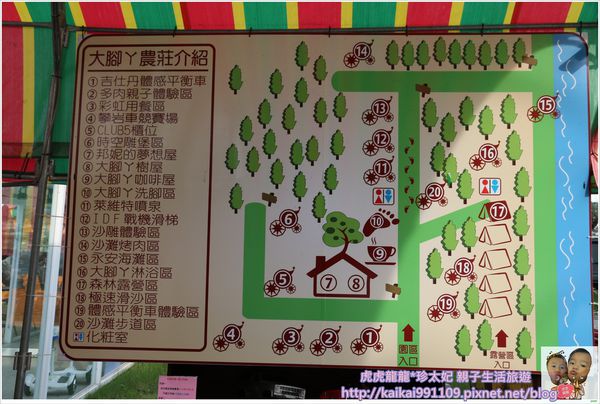 大腳丫農莊介紹
①吉仕丹體感平衡車
②多肉親子體驗區
③彩虹用餐區
④攀岩車競賽場
⑤CLUB5櫃位
⑥時空雕堡區
⑦邦妮的夢想屋
⑧大腳丫樹屋
⑨大腳丫咖啡屋
⑩大腳丫洗腳區
⑪萊維特噴泉
⑫IDF戰機滑梯
⑬沙雕體驗區
⑭沙灘烤肉區
⑮永安海灘區
⑯大腳丫淋浴區
⑰森林露營區
⑱極速滑沙區
⑲體感平衡車體驗區
⑳沙灘步道區
化粧室
⑭
⑮
⑬
⑫
⑯
⑪
⑳
⑰
⑥
⑩
⑨
⑱
⑤
⑦ ⑧
⑲
④ ③ ② ①
園區
入口
露營區
入口
虎虎龍龍*珍太妃 親子生活旅遊
http://kaikai991109.pixnet.net/blog